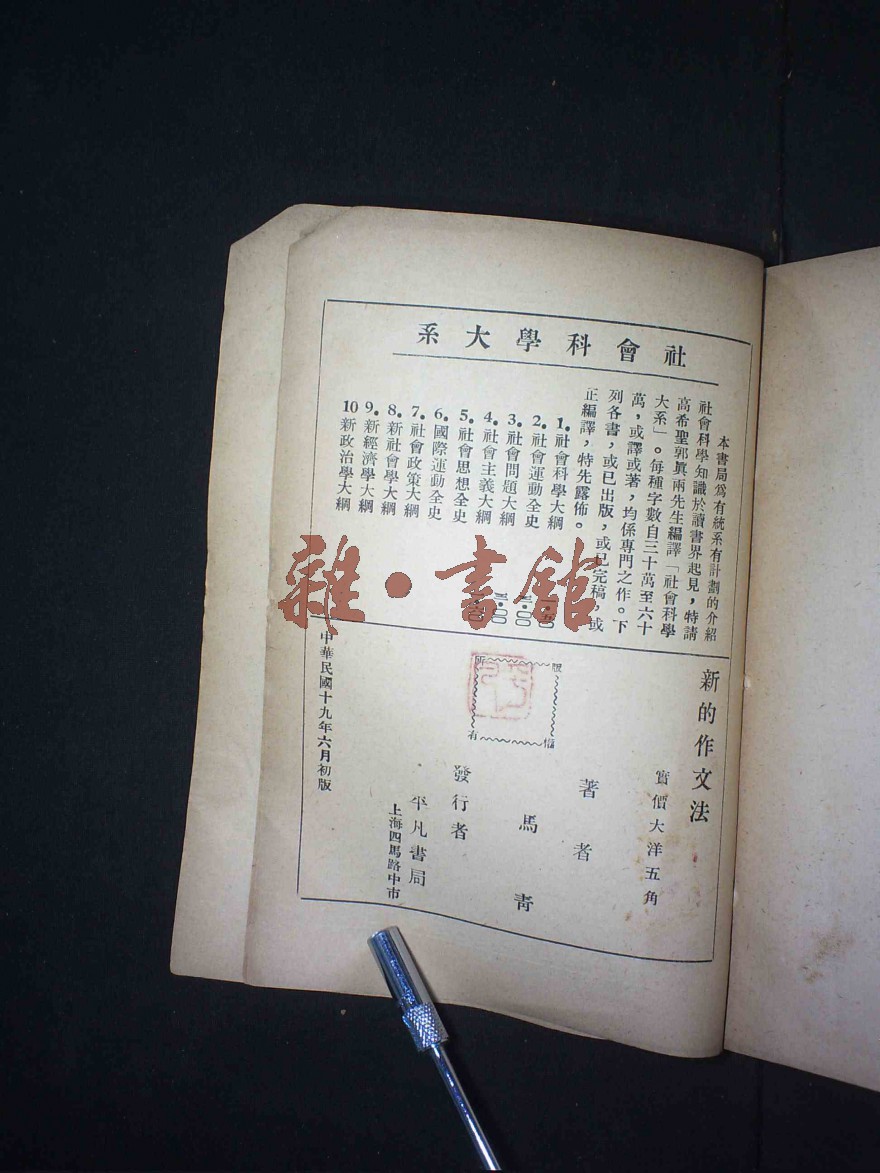 社會科學大系
本書局爲有統系有計劃的介紹
社會科學知識於讀書界起見，特請
高希聖郭眞兩先生編譯「社會科學
大系」。每種字數自三十萬至六十
萬，或譯或著，均係專門之作。下
列各書，或已出版，或已完稿，或
正編譯，特先露佈。
1.社會科學大綱
2.社會運動全史
3.社會問題大綱
4.社會主義大綱
5.社會思想全史
6.國際運動全史
7.社會政策大綱
8.新社會學大綱
9.新經濟學大綱
10新政治學大綱
新的作文法
實價大洋五角
著者
馬青
版權所有
發行者
平凡書局
上海四馬路中市
中華民國十九年六月初版
雜·書館